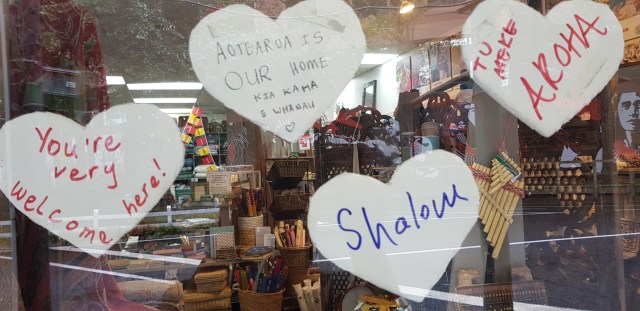 AOTEAROA IS
OUR HOME
KIA KAHA
E WHANAU
TU
MEKE
AROHA
You're
very
welcome here!
Shalom